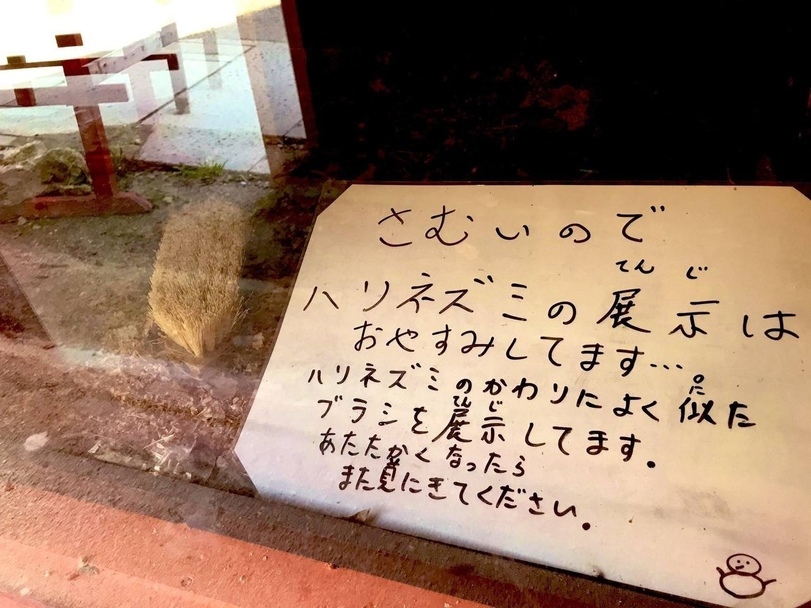 さむいので
てんじ
ハリネズミの展示は
おやすみしてます…
に
ハリネズミのかわりによく似た
てんじ
ブラシを展示してます。
あたたかくなったら
また見にきてください。